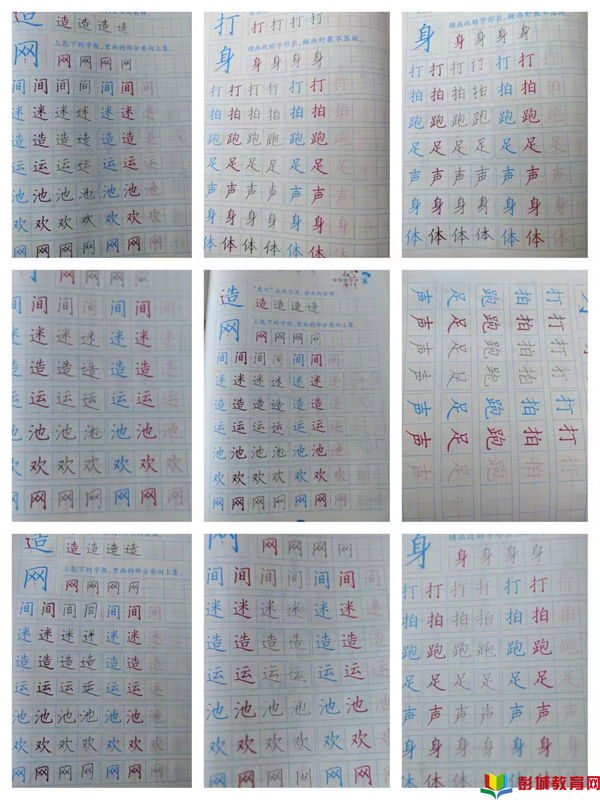 造 造造造造
上包下的字框，里面的部分要向上靠。
网 网网网网
间间间间间间间
迷迷迷迷迷迷迷
造造造造造造造
运运运运运运运
池池池池池池池
欢欢欢欢欢欢欢
网网网网网网网
打 打打打打
横画收短字形长，撇画舒展不落地。
身 身身身身
打打打打打打打
拍拍拍拍拍拍拍
跑跑跑跑跑跑跑
足足足足足足足
声声声声声声声
身身身身身身身
体体体体体体体
横画收短字形长，撇画舒展不落地。
身 身身身身
打打打打打打打
拍拍拍拍拍拍拍
跑跑跑跑跑跑跑
足足足足足足足
声声声声声声声
身身身身身身身
体体体体体体体
网网网网
间间间间间间间
迷迷迷迷迷迷迷
造造造造造造造
运运运运运运运
池池池池池池池
欢欢欢欢欢欢欢
网网网网网网网
造 造造造造
上包下的字框，里面的部分要向上靠。
网 网网网网
间间间间间间间
迷迷迷迷迷迷迷
造造造造造造造
运运运运运运运
池池池池池池池
欢欢欢欢欢欢欢
网网网网网网网
打打打打打打打
拍拍拍拍拍拍拍
跑跑跑跑跑跑跑
足足足足足足足
声声声声声声声
造 造造造造
上包下的字框，里面的部分要向上靠。
网 网网网网
间间间间间间间
迷迷迷迷迷迷迷
造造造造造造造
运运运运运运运
池池池池池池池
欢欢欢欢欢欢欢
网网网网网网网
网 网网网网
间间间间间间间
迷迷迷迷迷迷迷
造造造造造造造
运运运运运运运
池池池池池池池
欢欢欢欢欢欢欢
网网网网网网网
横画收短字形长，撇画舒展不落地。
身 身身身身
打打打打打打打
拍拍拍拍拍拍拍
跑跑跑跑跑跑跑
足足足足足足足
声声声声声声声
身身身身身身身
体体体体体体体
彭城教育网